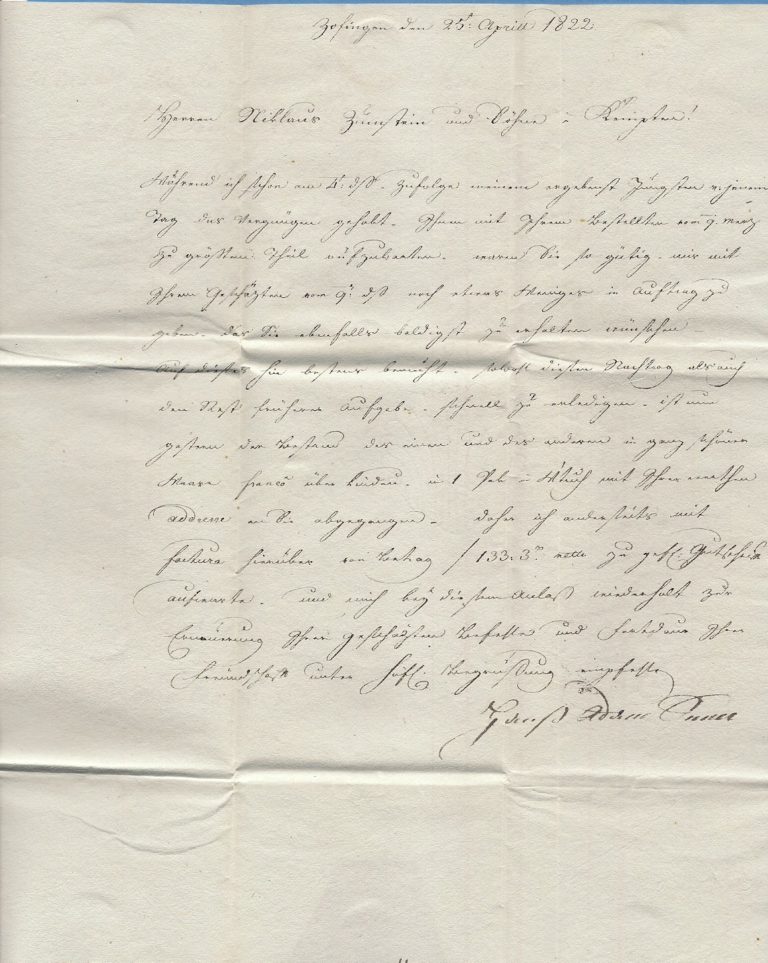 Zofingen den 25t: Aprill 1822
Herren Niklaus Zumstein und Söhne in Kempten!
Während ich schon am 4t: dß. Zufolge meinem ergebenst Jüngsten v. jenem
Tag das Vergnügen gehabt. Ihnen mit Ihrem Bestellten vom 9. Merz
zu größten Theil aufzuwarten. waren Sie so gütig. mir mit
Ihrem Geschäzten vom 9t: dß noch etwas Weniges in Auftrag zu
geben. das Sie ebenfalls baldigst zu erhalten wünschen.
Auf dieses hin bestens bemüht. sowohl diesen Nachtrag als auch
den Rest früherer Aufgabe. schnell zu erledigen. ist nun
gestern der Bestand des einen und des anderen in ganz schöner
Waare franco über Lindau. in 1 mit Ihrer
addresse an Sie abgegangen. daher ich anderseits mit
factura hierüber von Betrag f 133.3 zu gefl: Gutschrift
aufwarte. und mich bey diesem Anlaß wiederholt zur
Erneuerung Ihrer geschäzten Befehle und Fortdaur Ihrer
Freundschaft unter höfl: Begrüßung empfehle
Hanß Adam